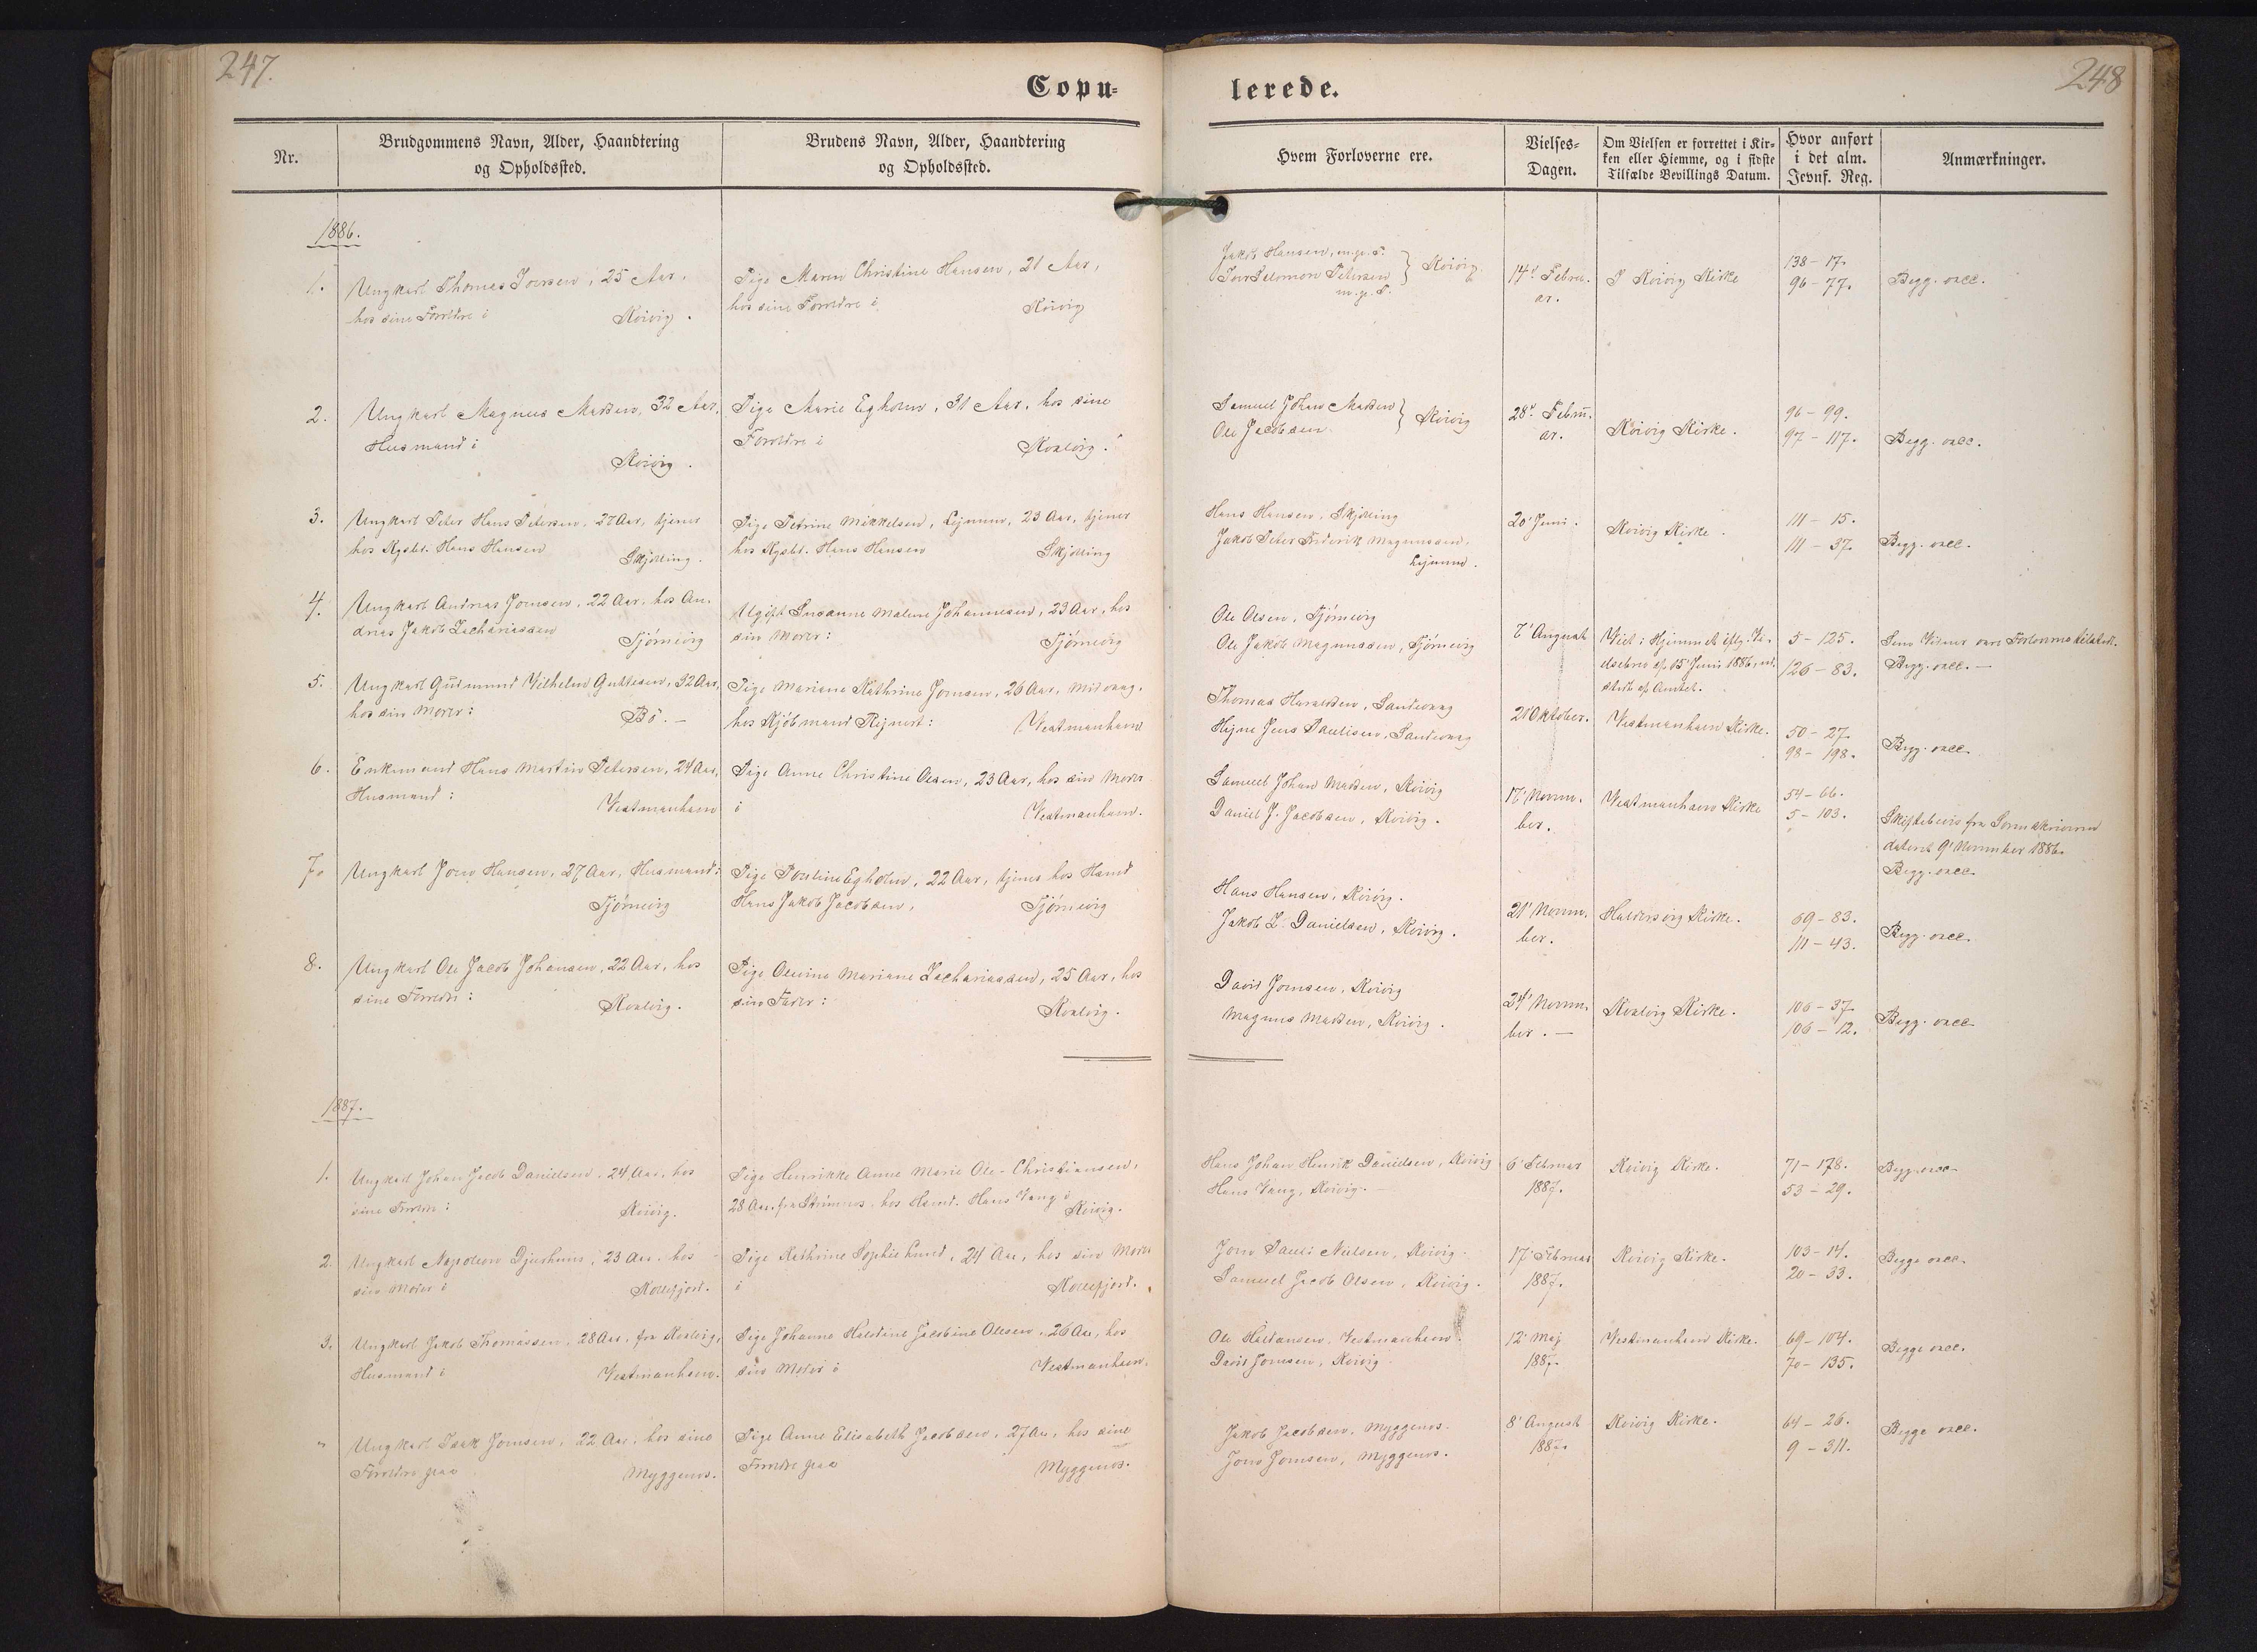 247.
Copu-
Nr.
Brudgommens Navn, Alder, Haandtering
og Opholdssted.
Brudens Navn, Alder, Haandtering
og Opholdssted.
1886.
1.
Ungkarl Thomas Joensen, 25 Aar,
hos sine Forældre i Kvivig.
Pige Maren Christine Hansen, 21 Aar,
hos sine Forældre i Kvivig
2.
Ungkarl Magnus Madsen, 32 Aar,
Husmand i
Kvivig.
Pige Marie Egholm, 31 Aar, hos sine
Forældre i
Kvalvig.
3.
Ungkarl Peter Hans Petersen, 27 Aar, tjener
hos Kgsbd. Hans Hansen
Skjelling.
Pige Petrine Mikkelsen, Lejnum, 23 Aar, tjener
hos Kgsbd. Hans Hansen
Skjelling
4.
Ungkarl Andreas Joensen, 22 Aar, hos An-
dreas Jakob Zachariassen
Tjørnevig
Ugift Susanne Malene Johannesen, 23 Aar, hos
sin Moder: Tjørnevig
5.
Ungkarl Gudmund Vilhelm Guttesen, 32 Aar,
hos sin Moder: Bø. —
Pige Mariane Kathrine Joensen, 26 Aar, Midvaag,
hos Kjøbmand Rejnert: Vestmanhavn
6.
Enkemand Hans Martin Petersen, 24 Aar,
Husmand: Vestmanhavn
Pige Anne Christine Olsen, 23 Aar, hos sin Moder
i Vestmanhavn.
7.
Ungkarl Joen Hansen, 27 Aar, Husmand:
Tjørnevig
Pige Pouline Egholm, 22 Aar, tjener hos Hsmd
Hans Jakob Jacobsen, Tjørnevig
8.
Ungkarl Ole Jacob Johansen, 22 Aar, hos
sine Forældre: Kvalvig.
Pige Olevine Mariane Zachariassen, 25 Aar, hos
sin Fader: Kvalvig.
1887.
1.
Ungkarl Johan Jacob Danielsen, 24 Aar, hos
sine Forældre: Kvivig.
Pige Henrikke Anne Marie Ole-Christiansen,
28 Aar, fra Strømnæs, hos Hsmd. Hans Vang i
Kvivig.
2.
Ungkarl Napoleon Djurhuus, 23 Aar, hos
sin Moder i Kollefjord.
Pige Kathrine Sophie Lund, 24 Aar, hos sin Moder
i Kollefjord.
3.
Ungkarl Jakob Thomassen, 28 Aar, fra Kvalvig,
Husmand i Vestmanhavn.
Pige Johanne Jacobine Olesen, 26 Aar, hos
sin Moder i Vestmanhavn.
"
Ungkarl Isak Joensen, 22 Aar, hos sine
Forældre paa Myggenæs.
Pige Anne Elisabeth Jacobsen, 27 Aar, hos sine
Forældre paa Myggenæs.
248
lerede.
Hvem Forloverne ere.
Vielses-
Dagen.
Om Vielsen er forrettet i Kir-
ken eller Hiemme, og i sidste
Tilfælde Bevillings Datum.
Hvor anført
i det alm.
Jevnf. Reg.
Anmærkninger.
Jakob Hansen, m.p.S.
Joen Salomon Petersen
m.p.S.
Kvivig.
14d. Febru-
ar.
I Kvivig Kirke
138 - 17.
96 - 77.
Begg. vacc.
Samuel Johan Madsen
Ole Jacobsen
Kvivig
28d. Febru-
ar.
Kvivig Kirke.
96 - 99.
97 - 117.
Begg. vacc.
Hans Hansen, Skjelling
Jakob Peter Frederik Magnussen,
Lejnum.
20' Juni.
Kvivig Kirke.
111 - 15.
111 - 37.
Begg. vacc.
Ole Olsen, Tjørnevig
Ole Jakob Magnussen, Tjørnevig
7' August
Viet i Hjemmet iflg. Vi-
elsebrev af 15' Juni 1886, ud-
stedt af Amtet.
5 - 125.
126 - 83.
Begg. vacc. —
Thomas Haraldsen, Sandevaag
Hejne Jens Paulisen, Sandevaag
21 Oktober.
Vestmanhavn Kirke.
50 - 27.
98 - 198.
Begg. vacc.
Samuel Johan Madsen, Kvivig
Daniel J. Jacobsen, Kvivig.
17' Novem-
ber.
Vestmanhavn Kirke
54 - 66.
5 - 103.
Skiftebevis fra Sorenskriveren
dateret 9' November 1886.
Begg. vacc.
Hans Hansen, Kvivig.
Jakob L. Danielsen, Kvivig.
21' Novem-
ber.
Haldersvig Kirke.
69 - 83.
111 - 43.
Begg. vacc.
David Joensen, Kvivig
Magnus Madsen, Kvivig.
24' Novem-
ber. —
Kvalvig Kirke.
106 - 37.
106 - 12.
Begg. vacc.
Hans Johan Henrik Danielsen, Kvivig
Hans Vang, Kvivig.
6' Februar
1887.
Kvivig Kirke.
71 - 178.
53 - 29.
Begg. vacc.
Joen Pauli Nielsen, Kvivig.
Samuel Jacob Olsen, Kvivig.
17' Februar
1887.
Kvivig Kirke.
103 - 14.
20 - 33.
Begge vacc.
Ole Haldansen, Vestmanhavn.
David Joensen, Kvivig
12' Maj
1887.
Vestmanhavn Kirke.
69 - 104.
70 - 135.
Begge vacc.
Jakob Jacobsen, Myggenæs.
Joen Joensen, Myggenæs.
8' August
1887.
Kvivig Kirke.
64 - 26.
9 - 311.
Begge vacc.